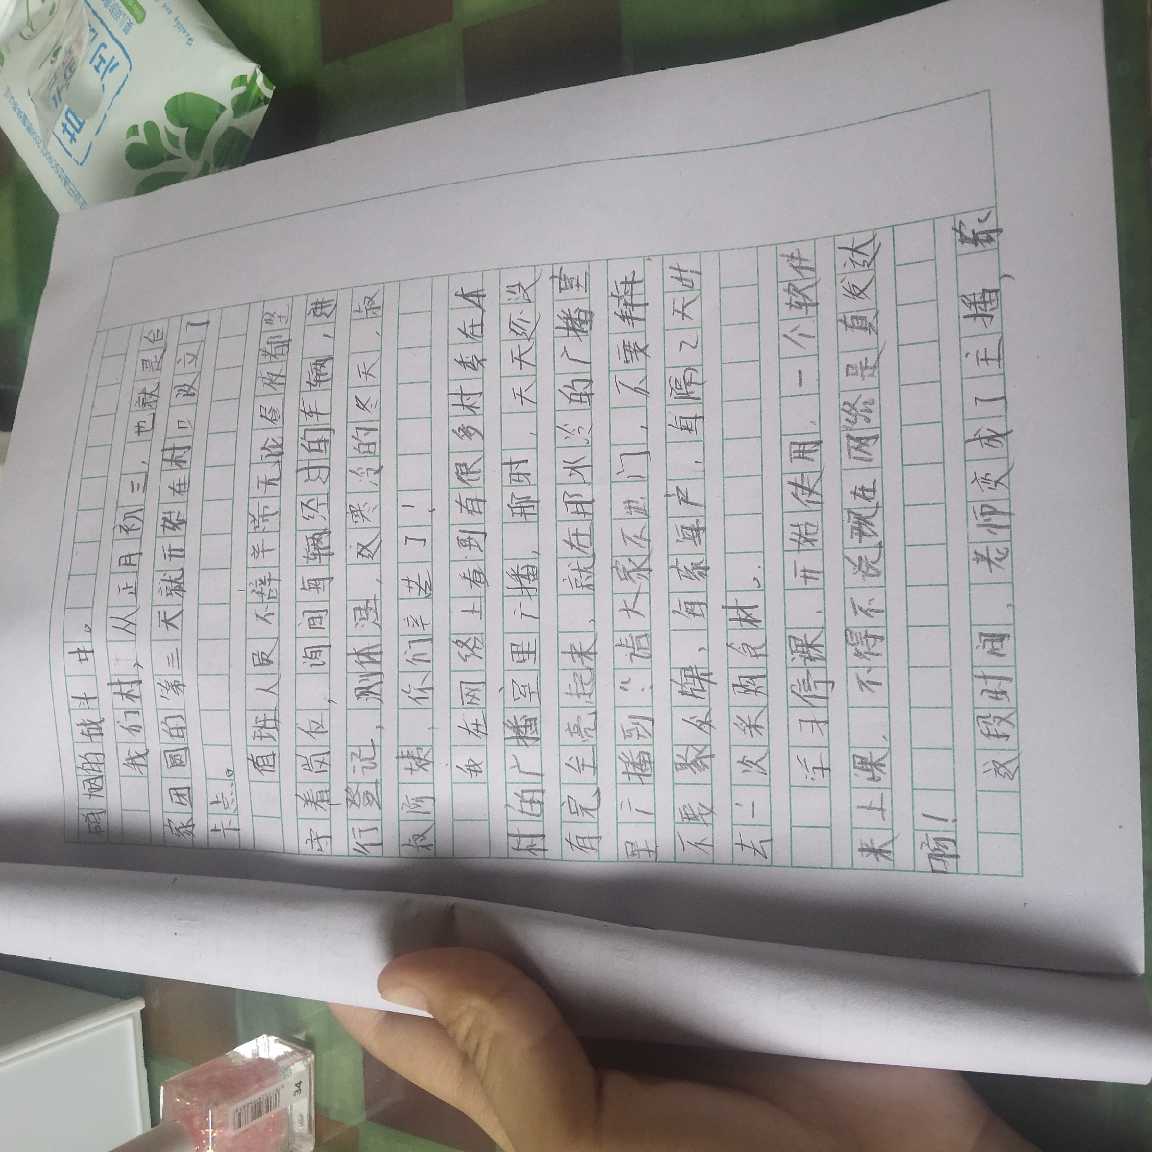 硝烟的战斗中。
我们村，从正月初三，也就是合
家团圆的第三天就开始在村口设立了
卡点。
值班人员不辞辛苦无论昼夜都坚
守着岗位，询问每辆经过的车辆，进
行登记，测体温，这寒冷的冬天，叔
叔阿姨，你们辛苦了！
我在网络上看到有很多村委在本
村的广播室里广播，那时，天天还没
有完全亮起来，就在那冰冷的广播室
里广播到："请大家不出门，不要
不要聚众，每家每户，每隔2天出
去一次采购食材。"
学习停课，开始使用，一个软件
来上课，不得不说现在网络是真发达
啊！
这段时间，老师变成了主播，家
34